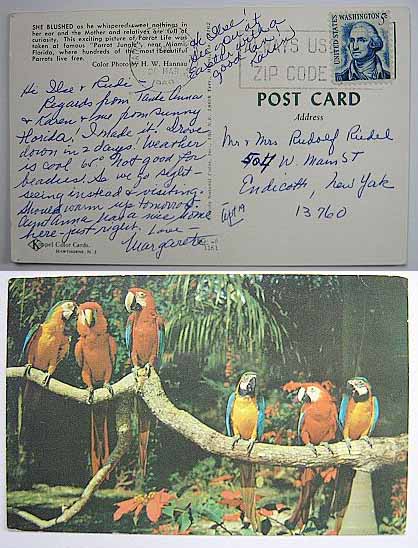 SHE BLUSHED as he whispered sweet nothings in
her ear and the Mother and relatives are full of
curiosity. This exciting picture of Parrot Life was
taken at famous "Parrot Jungle" near Miami,
Florida, where hundreds of the most beautiful
Parrots live free.
Color Photo by H. W. Hannau
Hi Ilse & Rudi –
Regards from Tante Anna
& Karen & me from sunny
Florida! I made it! Drove
down in 2 days! Weather
is cool 60° Not good for
beaches. So we go sight-
seeing instead & visiting.
Should warm up tomorrow.
has a nice home
here – just right. Love –
Margaret
Koppel Color Cards.
HAWTHORNE, N. J.
Hi Ilse!
See you at
Easter with a
good tan
Karen
UNITED STATES
WASHINGTON
5c
US
ZIP CODE
POST CARD
Address
Mr & Mrs Rudolf Riedel
504 W. Main ST
Endicott, New York
13760